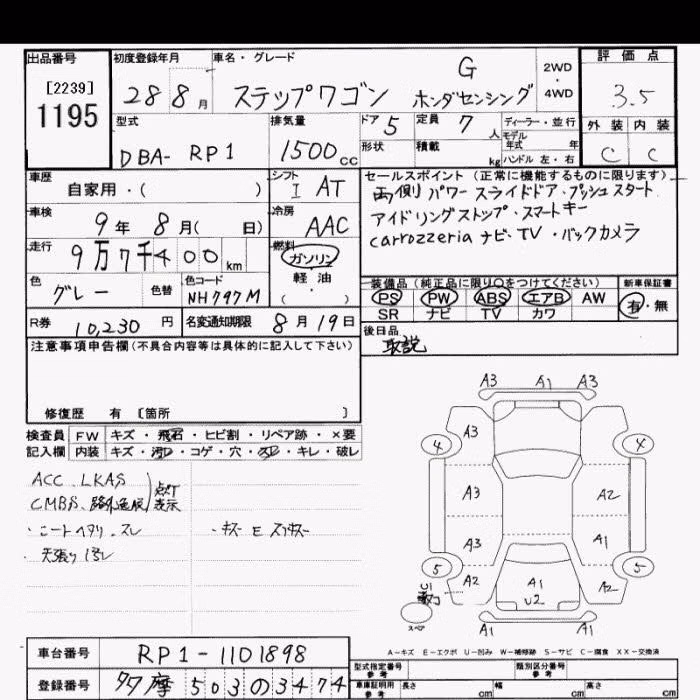 出品番号
[2239]
1195
初度登録年月
28 8月
車名・グレード
G
ステップワゴン ホンダセンシング
2WD
・
4WD
評価点
3.5
外装 内装
C C
型式
DBA- RP1
排気量
1500cc
ドア 5
定員 7人
形状
積載 kg
ディーラー・並行
モデル年式 年
ハンドル 左・右
車歴
自家用・( )
シフト
I AT
車検
9年 8月( 日)
冷房
AAC
走行
9万7千400km
燃料
ガソリン
軽油
・
( )
色
グレー
色替
色コード
NH797M
R券
10,230円
名変通知期限
8月19日
セールスポイント(正常に機能するものに限ります)
両側パワースライドドア・プッシュスタート
アイドリングストップ・スマートキー
carrozzeria ナビ・TV・バックカメラ
装備品(純正品に限り○をつけてください)
PS PW ABS エアB AW
SR ナビ TV カワ
新車保証書
有・無
後日品
取説
注意事項申告欄(不具合内容等は具体的に記入して下さい)
修復歴 有 [箇所 ]
検査員記入欄
FW キズ・飛石・ヒビ割・リペア跡・×要
内装 キズ・汚レ・コゲ・穴・スレ・キレ・破レ
ACC. LKAS
CMBS. 路外逸脱
点灯表示
・シートヘタリ.スレ
・天張り汚レ
・キズ E
A3 A1 A3
4 A3 4
A3 A2
A3 A1
5 A2 A1 A2 5
U2
スペア
A1 A1
A-キズ E-エクボ U-凹み W-補修跡 S-サビ C-腐食 XX-交換済
車台番号
RP1-1101898
登録番号
多摩503の3474
型式指定番号 参考
類別区分番号 参考
車庫証明用 参考
長さ cm
幅 cm
高さ cm